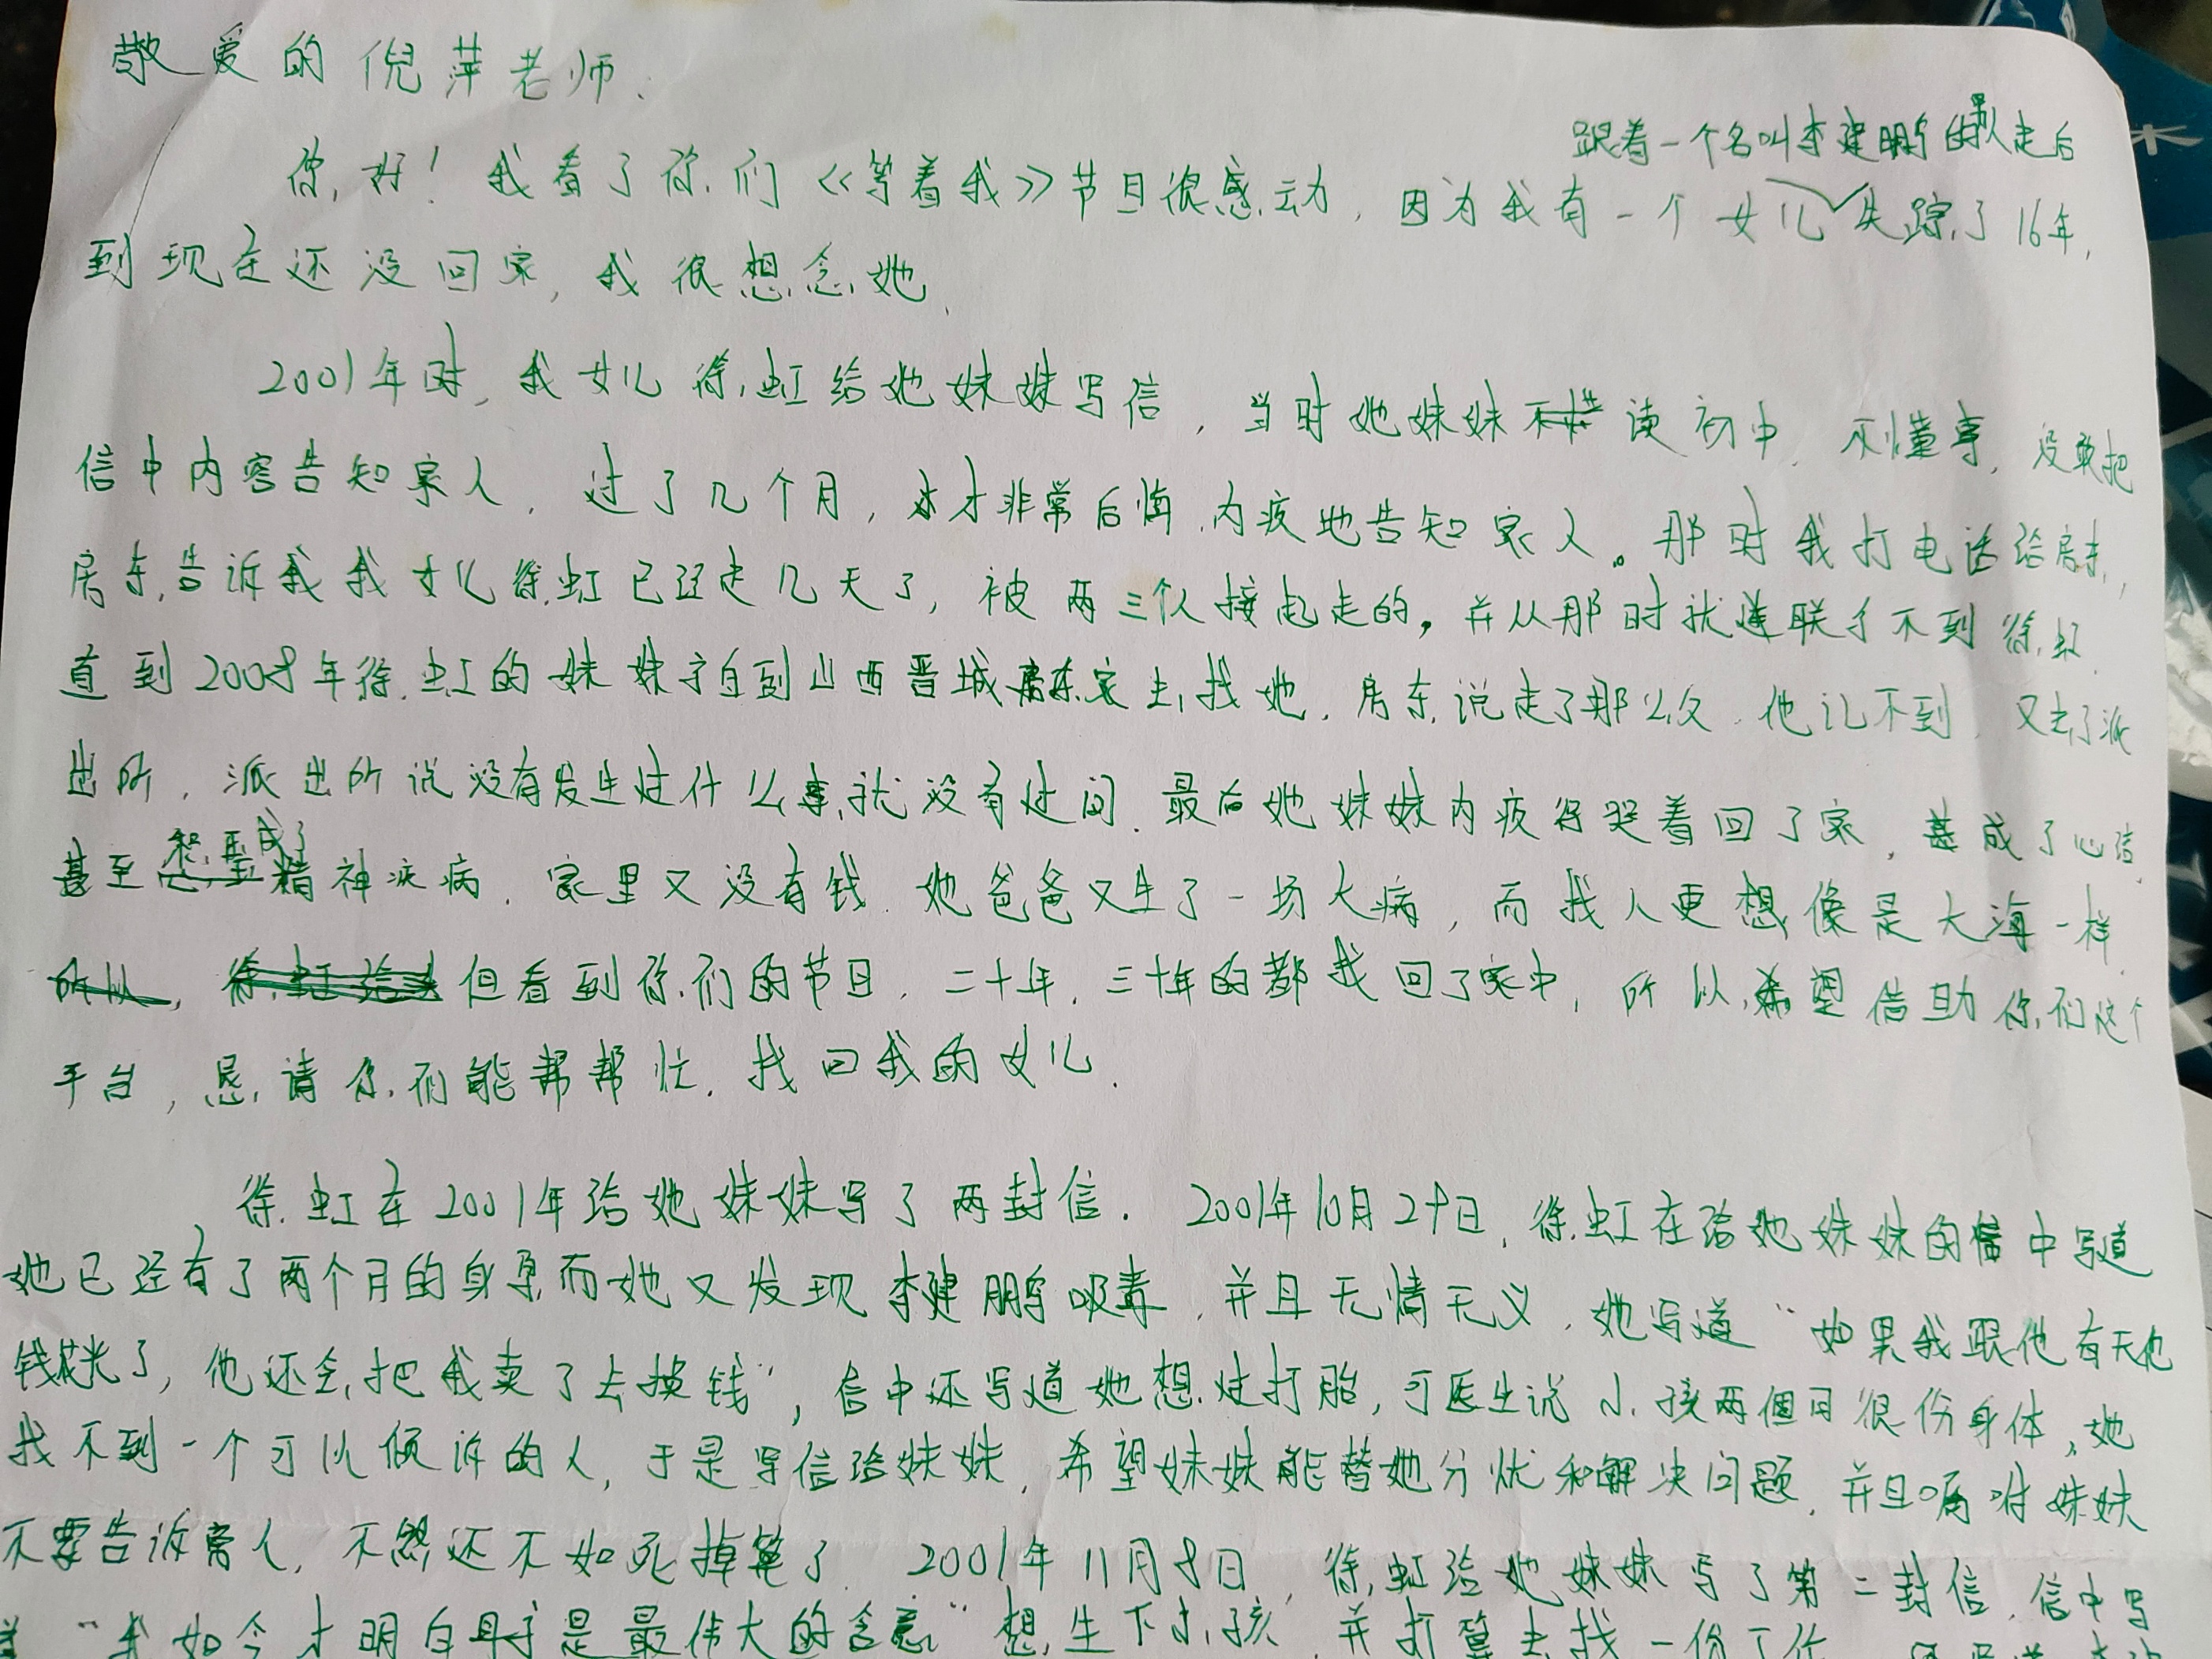 敬爱的倪萍老师.
跟着一个名叫李建鹏的男人走后
你好！我看了你们《等着我》节目很感动，因为我有一个女儿失踪了16年,
到现在还没回家,我很想念她.
2001年时,我女儿徐虹给她妹妹写信,当时她妹妹读初中,不懂事,没敢把
信中内容告知家人,过了几个月,才非常后悔,内疚地告知家人。那时我打电话给房东,
房东告诉我我女儿徐虹已经走几天了,被两三个人接走的,并从那时就联系不到徐虹.
直到2008年徐虹的妹妹亲自到山西晋城房东家去找她,房东说走了那么久,他记不到,又去了派
出所,派出所说没有发生过什么事,就没有过问.最后她妹妹内疚得哭着回了家,甚成了心结,
积压成了
甚至精神疾病.家里又没有钱.她爸爸又生了一场大病,而找人更想像是大海一样.
但看到你们的节目,二十年,三十年的都找回了家中,所以,希望借助你们这个
平台,恳请你们能帮帮忙.找回我的女儿.
徐虹在2001年给她妹妹写了两封信. 2001年10月28日,徐虹在给她妹妹的信中写道
她已经有了两个月的身孕而她又发现李建鹏吸毒,并且无情无义,她写道“如果我跟他有天他
钱花光了,他还会把我卖了去换钱”,信中还写道她想过打胎,可医生说小孩两個月很伤身体,她
找不到一个可以倾诉的人,于是写信给妹妹,希望妹妹能替她分忧和解决问题,并且嘱咐妹妹
不要告诉旁人,不然还不如死掉算了. 2001年11月8日,徐虹给她妹妹写了第二封信,信中写
道“我如今才明白母亲是最伟大的含意”想生下小孩,并打算去找一份工作